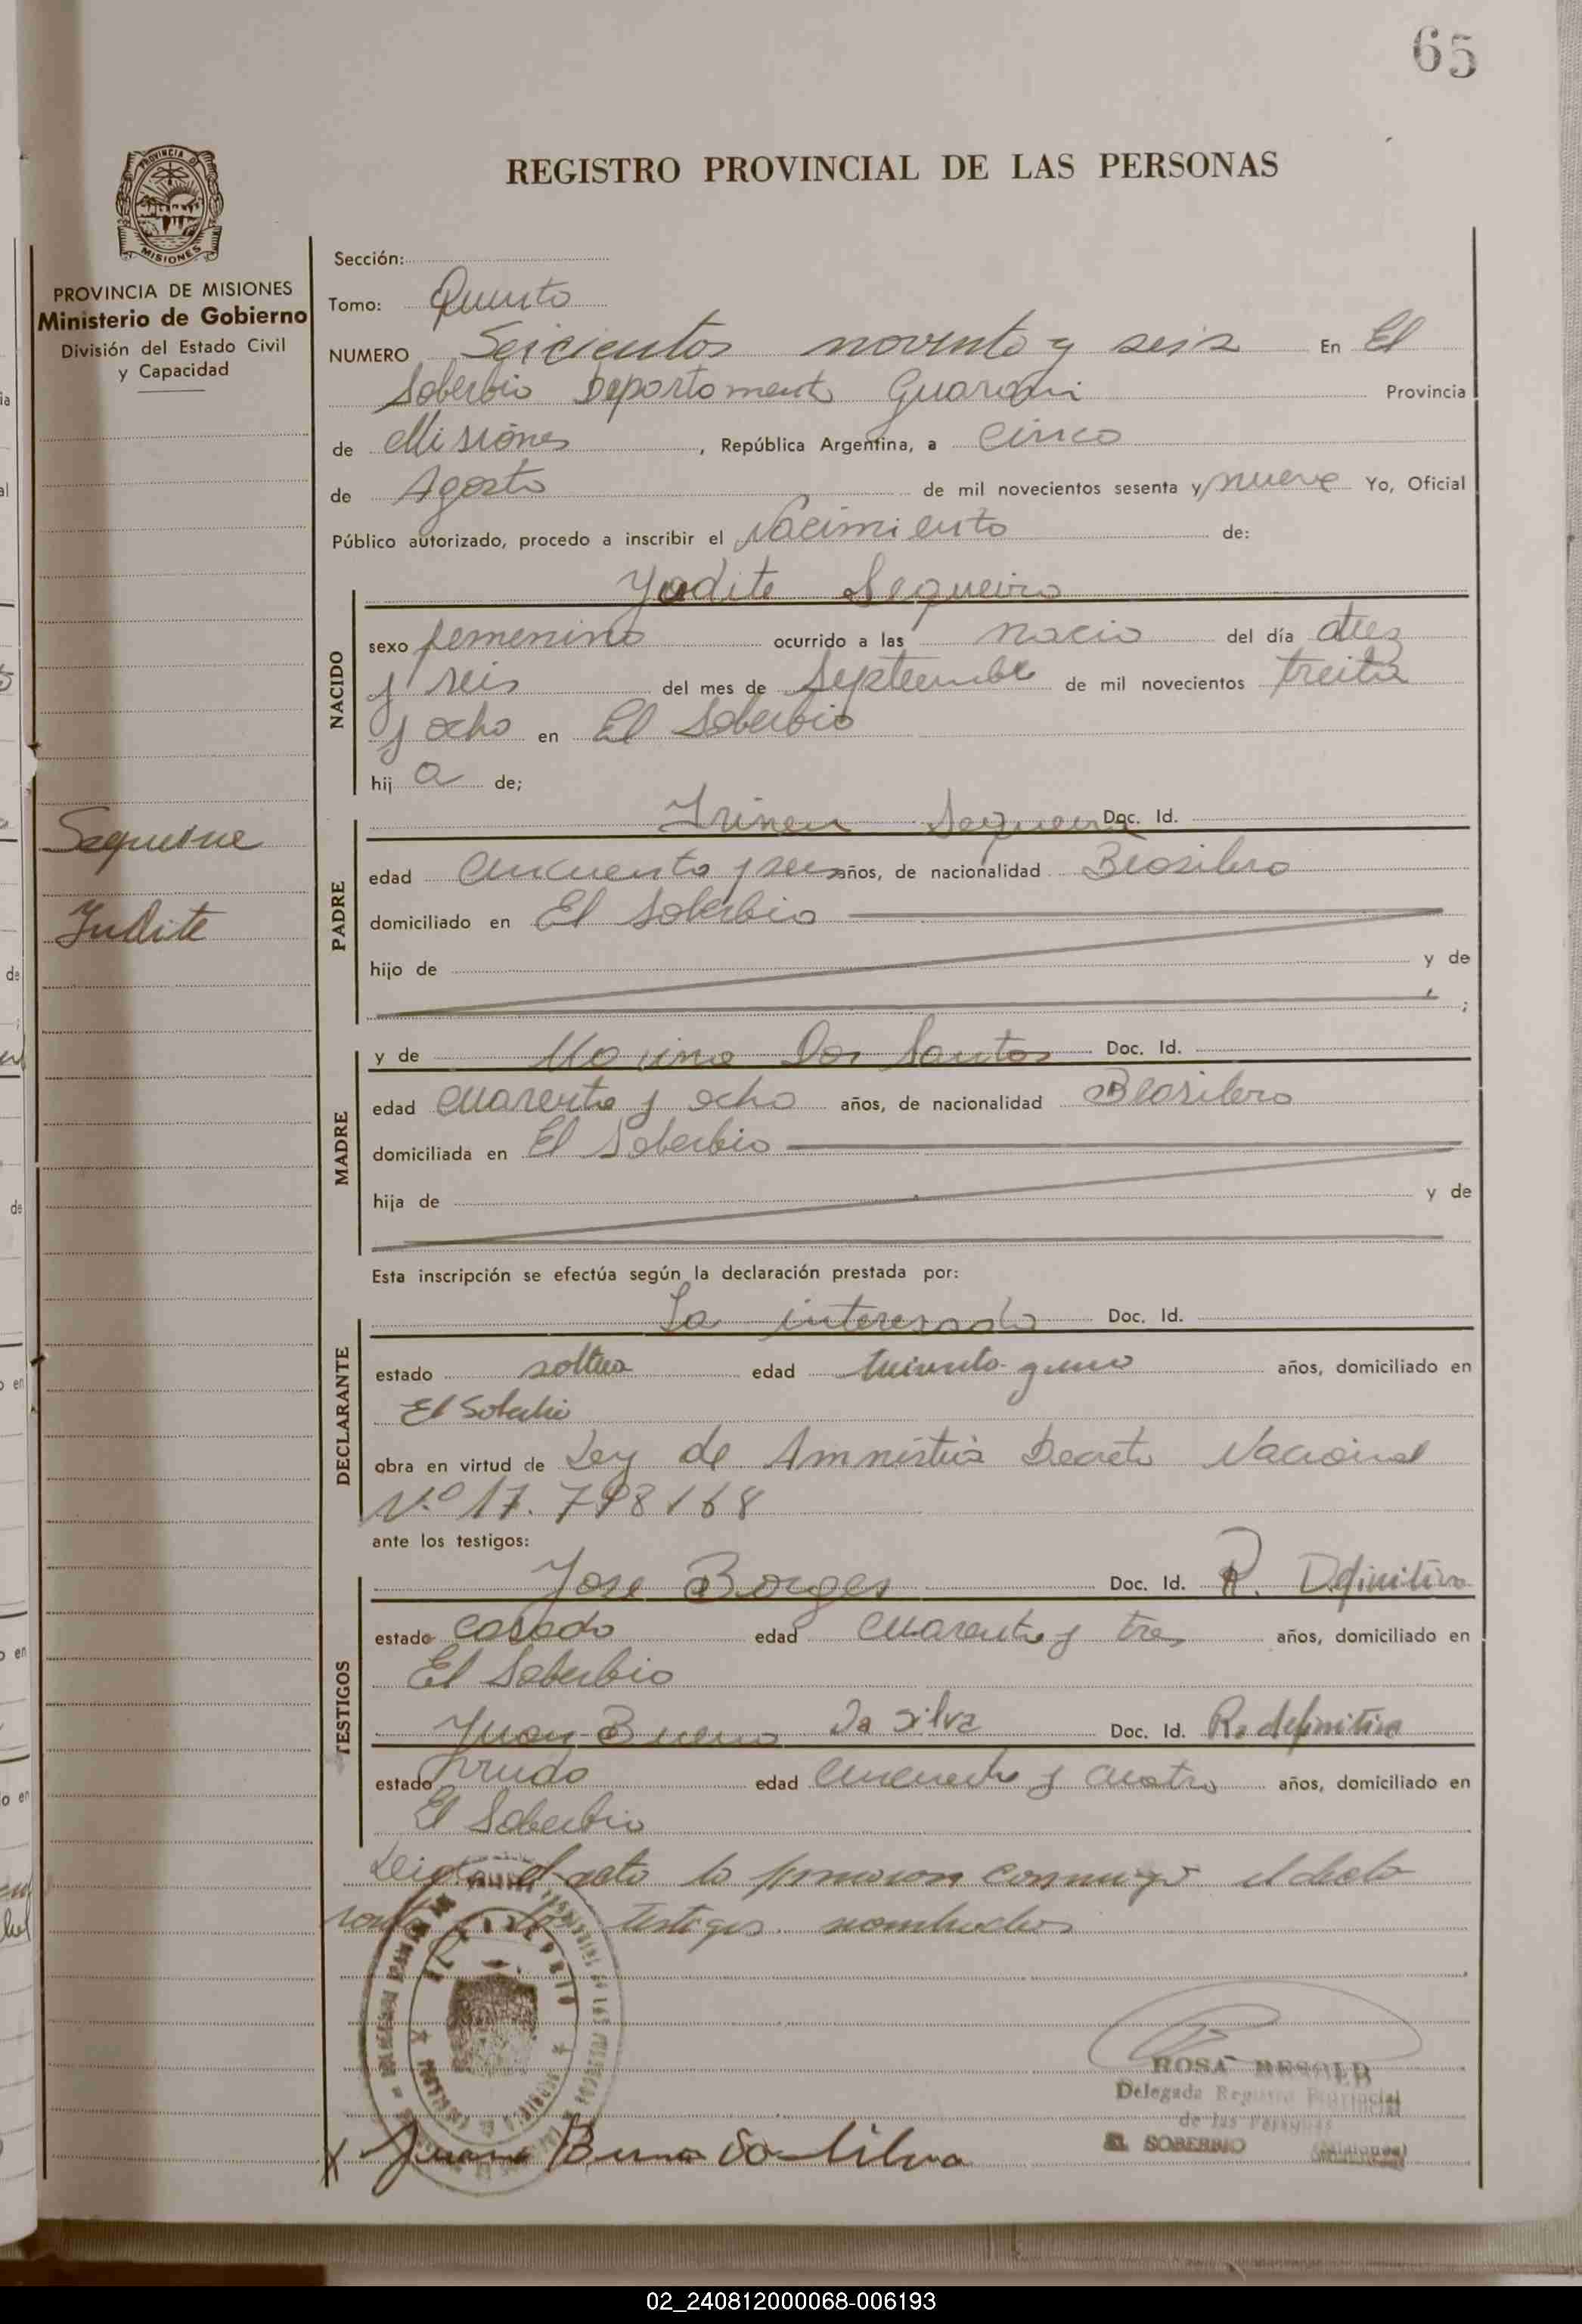 65
REGISTRO PROVINCIAL DE LAS PERSONAS
PROVINCIA DE
MISIONES
PROVINCIA DE MISIONES
Ministerio de Gobierno
División del Estado Civil
y Capacidad
Sequeira
Judite
Sección:
Tomo: Quinto
NUMERO Seicientos noventa y seis En El
Soberbio Departamento Guarani Provincia
de Misiones, República Argentina, a cinco
de Agosto de mil novecientos sesenta y nueve Yo, Oficial
Público autorizado, procedo a inscribir el Nacimiento de:
Yudite Sequeira
NACIDO
sexo femenino ocurrido a las nacio del día diez
y seis del mes de Septiembre de mil novecientos treita
y ocho en El Soberbio
hij a de;
PADRE
Irineu Sequeira Doc. Id.
edad cincuenta y seis años, de nacionalidad Brasilero
domiciliado en El Soberbio
hijo de y de
;
MADRE
y de Dos Santos Doc. Id.
edad cuarenta y ocho años, de nacionalidad Brasilera
domiciliada en El Soberbio
hija de y de
Esta inscripción se efectúa según la declaración prestada por:
DECLARANTE
La interesada Doc. Id.
estado soltera edad treinta y uno años, domiciliado en
El Soberbio
obra en virtud de Ley de Amnistia Decreto Nacional
N.º 17.798/68
ante los testigos:
TESTIGOS
Jose Borges Doc. Id. R. Definitiva
estado casado edad cuarenta y tres años, domiciliado en
El Soberbio
Juan Bueno Da Silva Doc. Id. R. definitiva
estado viudo edad cincuenta y cuatro años, domiciliado en
El Soberbio
Leida el acta la firmaron conmigo el decla
rante y los testigos nombrados
ROSA BESOLD
Delegada Registro Provincial
de las Personas
EL SOBERBIO (Misiones)
X Juan Bueno da Silva
02_240812000068-006193